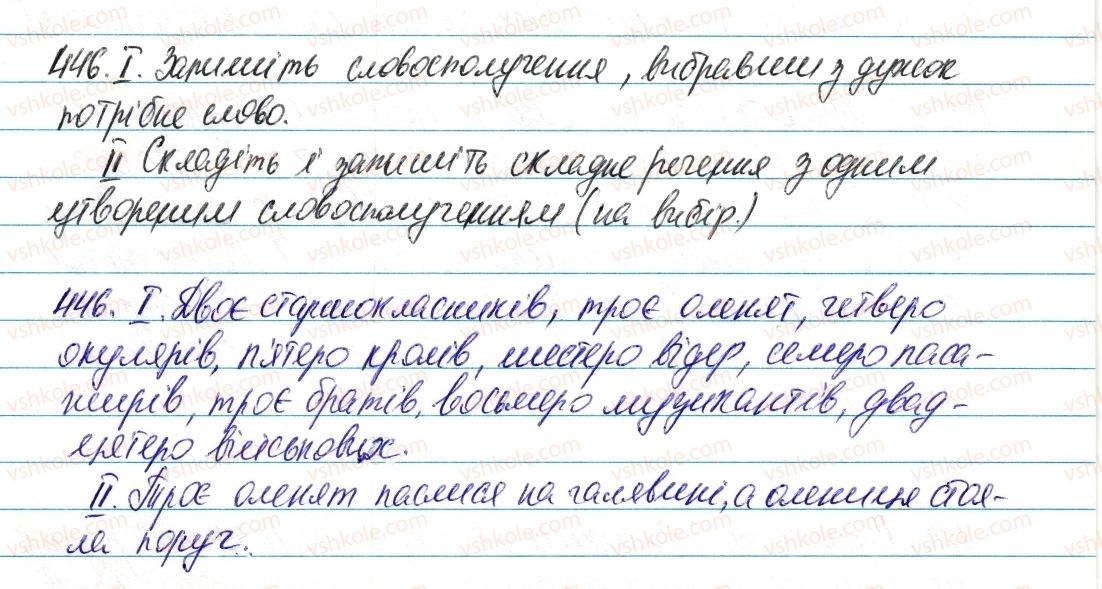 446. I. Запишіть словосполучення, вибравши з дужок
потрібне слово.
II Складіть і запишіть складне речення з одним
утвореним словосполученням (на вибір.)
446. I. Двоє старшокласників, троє оленят, четверо
окулярів, п'ятеро кролів, шестеро відер, семеро паса-
жирів, троє братів, восьмеро музикантів, двад-
цятеро військових.
II. Троє оленят паслися на галявині, а олениця стоя-
ла поруч.
vshkole.com